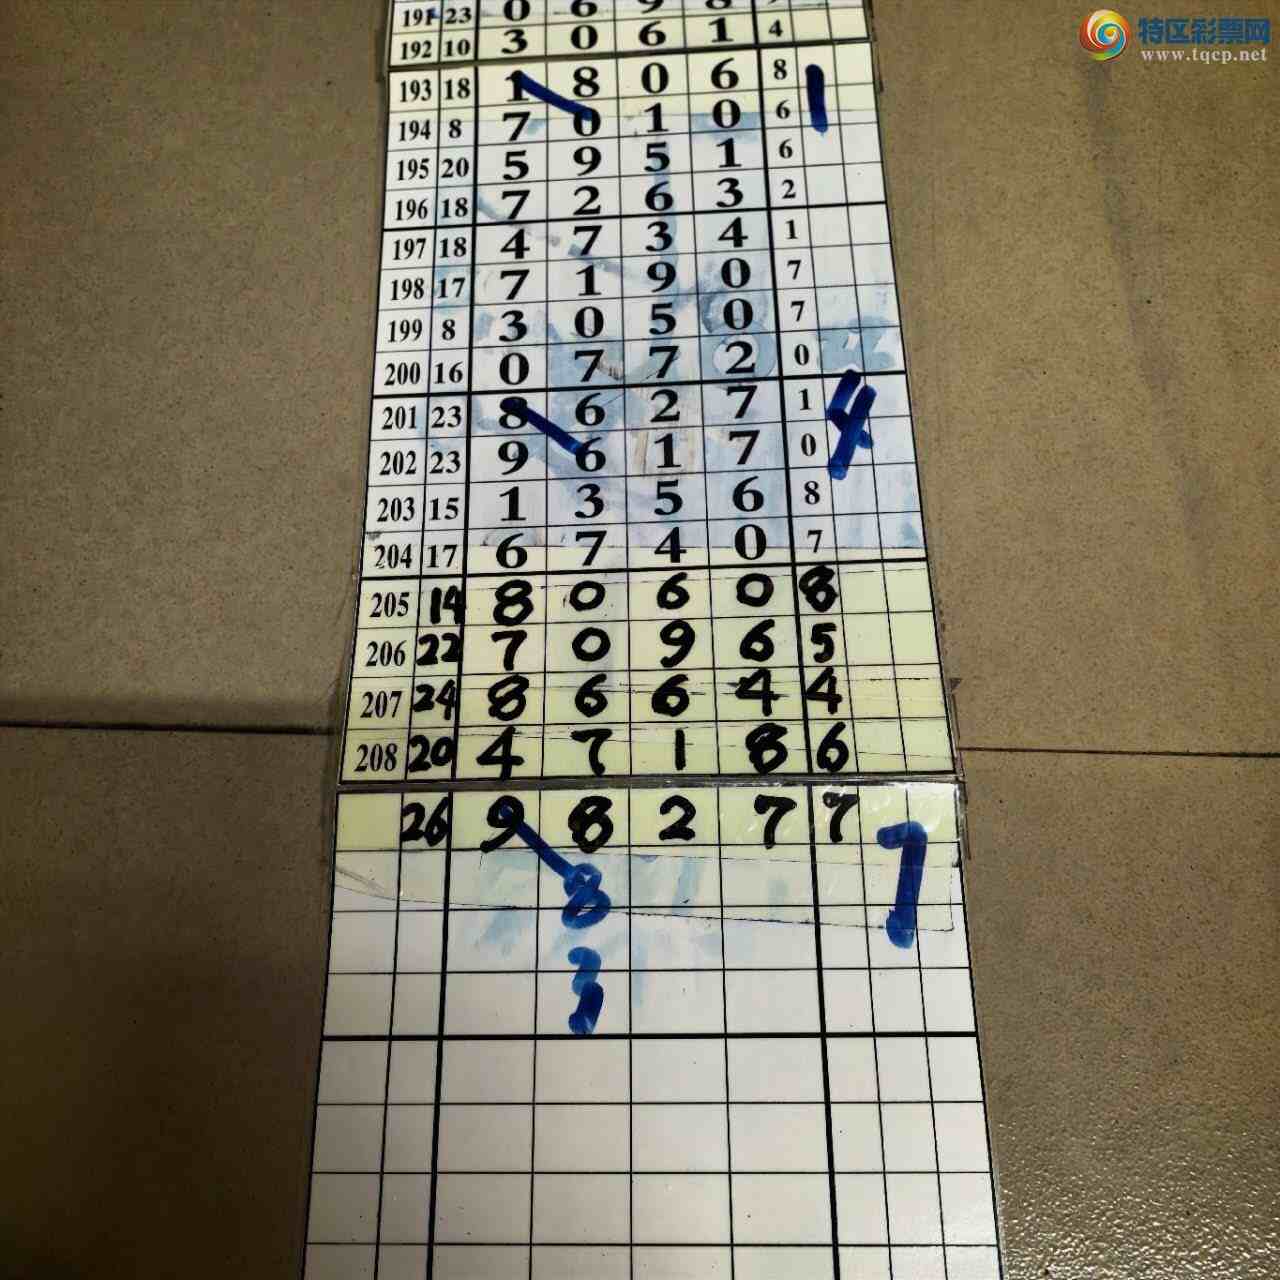 特区彩票网
www.tqcp.net
191 23 0 6 9 8
192 10 3 0 6 1 4
193 18 1 8 0 6 8 1
194 8 7 0 1 0 6
195 20 5 9 5 1 6
196 18 7 2 6 3 2
197 18 4 7 3 4 1
198 17 7 1 9 0 7
199 8 3 0 5 0 7
200 16 0 7 7 2 0
201 23 8 6 2 7 1 4
202 23 9 6 1 7 0
203 15 1 3 5 6 8
204 17 6 7 4 0 7
205 14 8 0 6 0 8
206 22 7 0 9 6 5
207 24 8 6 6 4 4
208 20 4 7 1 8 6
26 9 8 2 7 7 7
8
3